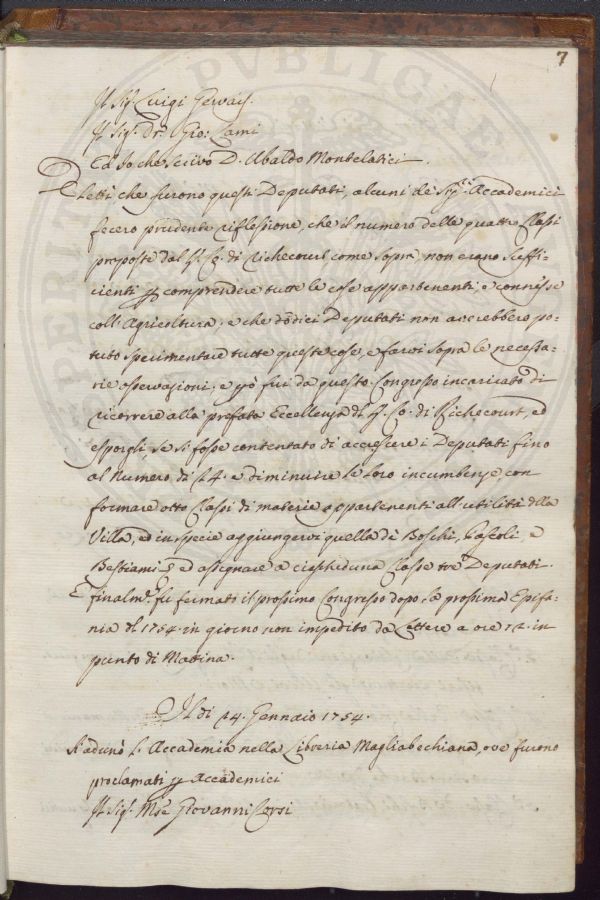 7
Il Sig.r Luigi Gervais.
Il Sig.r Dr. Gio: Lami
Ed Io che scrivo D. Ubaldo Montelatici.
Eletti che furono questi Deputati, alcuni de' Sig.ri Accademici
fecero prudente riflessione, che il numero delle quattro Classi
proposte dal S. Co. di Richecourt come sopra, non erano suffi-
cienti p comprendere tutte le cose appartenenti, e connesse
coll'Agricoltura; e che dodici Deputati non averebbero po-
tuto sperimentare tutte queste cose, e farvi sopra le necessa-
rie osservazioni; e p ciò fui da questo Congresso incaricato di
ricorrere alla prefata Eccellenza di S. Co. di Richecourt, ed
esporgli, se si fosse contentato di accrescere i Deputati fino
al Numero di 24. e diminuire le loro incumbenze, con
formare otto Classi di materie appartenenti all'utilità della
Villa, ed in specie aggiungervi quella di Boschi, Pascoli, e
Bestiami; ed assegnare a ciascheduna Classe tre Deputati.
E finalm.e fu fermato il prossimo Congresso dopo la prossima Epifa-
nia del 1754. in giorno non impedito da Lettere a ore 12. in
punto di Matina.
Il di 24. Gennaio 1754.
Si adunò l'Accademia nella Libreria Magliabechiana, ove furono
proclamati p Accademici
Il Sig.r Mse Giovanni Corsi
PVBLICAE